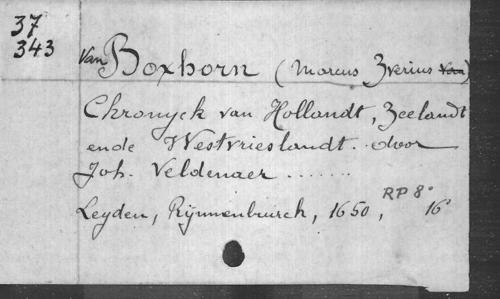 37
343
Van Boxhorn (Marcus Zverius van)
Chronyck van Hollandt, Zeelandt
ende Westvrieslandt. door
Joh. Veldenaer .......
RP 8°
Leyden, Rijnnenburch, 1650, 16°